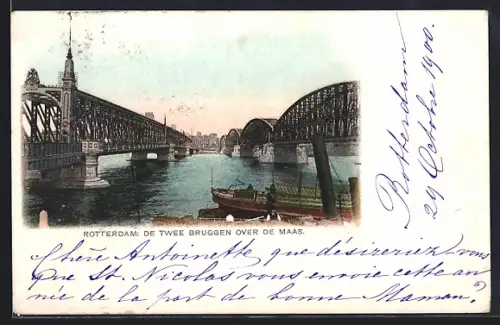 ROTTERDAM: DE TWEE BRUGGEN OVER DE MAAS.
Rotterdam
29 Octobre 1900.
Chère Antoinette, que désireriez-vous
que St. Nicolas vous envoie cette an
née de la part de bonne Maman?